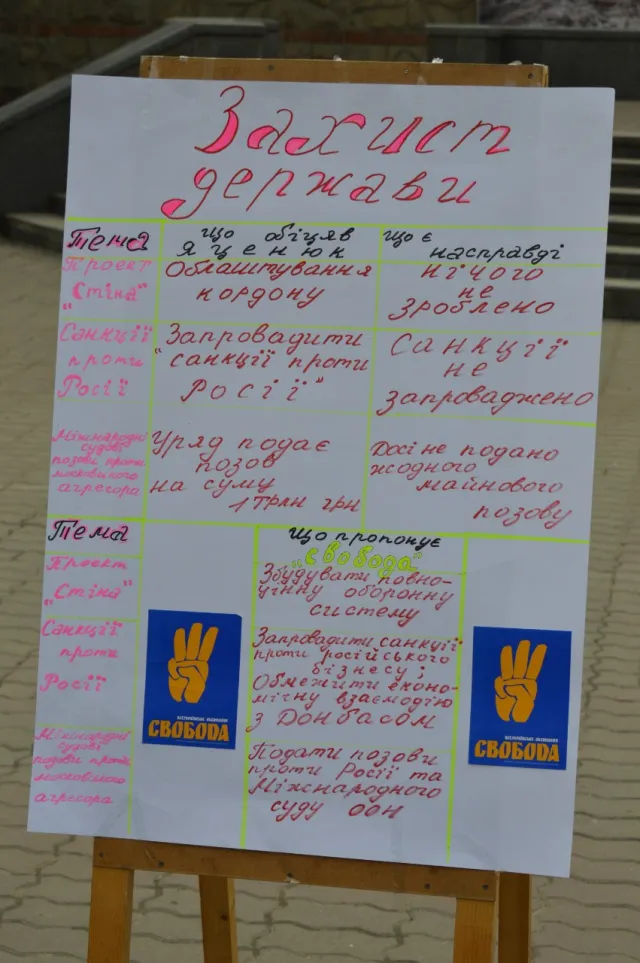 Захист
держави
Тема
Що обіцяв
Яценюк
Що є
насправді
Проект
"Стіна"
Облаштування
кордону
Нічого
не
зроблено
Санкції
проти
Росії
Запровадити
"санкції проти
Росії"
Санкції
не
запроваджено
Міжнародні
судові
позови проти
московського
агресора
Уряд подає
позов
на суму
1 трлн грн
Досі не подано
жодного
майнового
позову
Тема
Що пропонує
"Свобода"
Проект
"Стіна"
Збудувати повно-
цінну оборонну
систему
Санкції
проти
Росії
Запровадити санкції
проти російського
бізнесу;
Обмежити еконо-
мічну взаємодію
з Донбасом
Міжнародні
судові
позови проти
московського
агресора
Подати позови
проти Росії та
Міжнародного
суду ООН
ВСЕУКРАЇНСЬКЕ ОБ'ЄДНАННЯ
СВОБОДА
ВСЕУКРАЇНСЬКЕ ОБ'ЄДНАННЯ
СВОБОДА